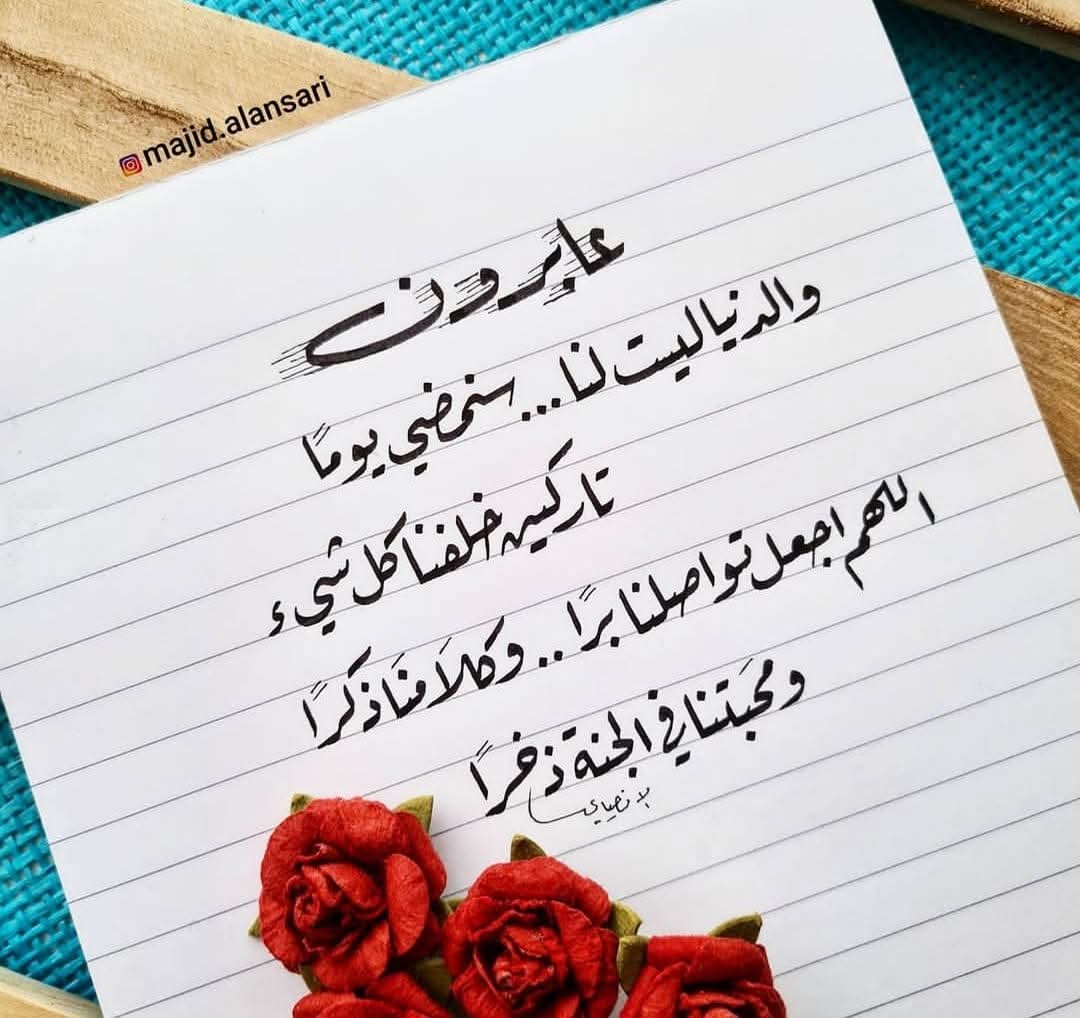 majid.alansari
عابرون
والدنيا ليست لنا... سنمضي يومًا
تاركين خلفنا كل شيء
اللهم اجعل تواصلنا برًا.. وكلامَنَا ذكرًا
ومحبَتنا في الجنة ذخرًا
الانصاري